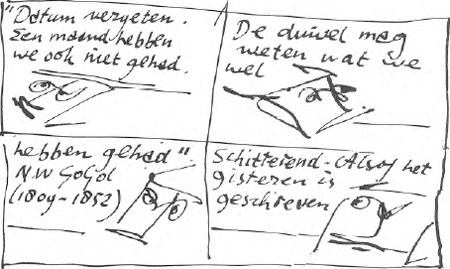 "Datum vergeten.
Een maand hebben
we ook niet gehad.
De duivel mag
weten wat we
wel
hebben gehad".
N.W GOGOL
(1809-1852)
Schitterend - Alsof het
gisteren is
geschreven